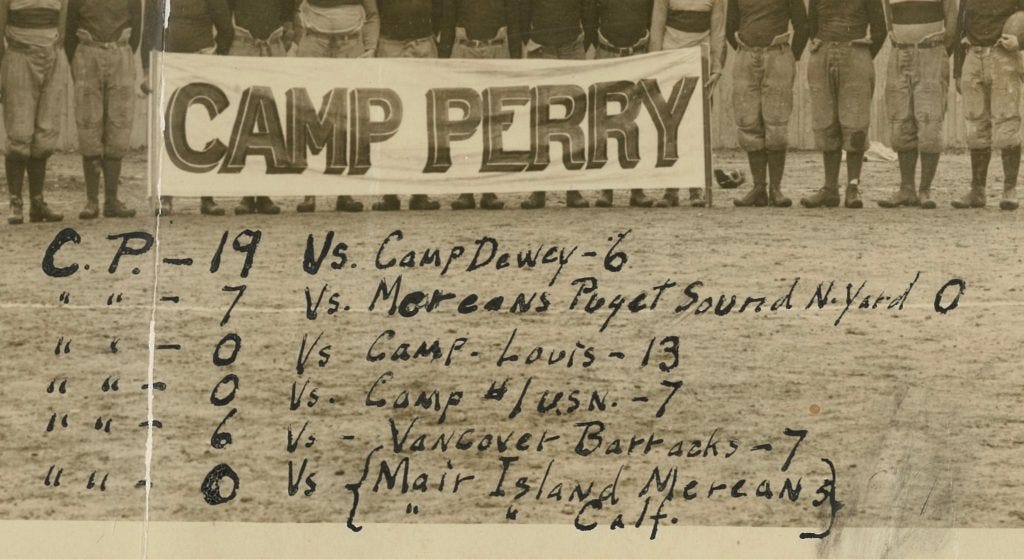 CAMP PERRY
C. P. - 19 Vs. Camp Dewey - 6
" " - 7 Vs. Mereans Puget Sound N. Yard 0
" " - 0 Vs Camp - Louis - 13
" " - 0 Vs. Camp #1 U.S.N. - 7
" " - 6 Vs - Vancover Barracks - 7
" " - 0 Vs { Mair Island Mereans }
" " Calf.